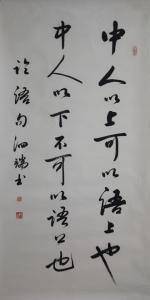 中人以上可以語上也
中人以下不可以語上也
論語句 泗瑞书